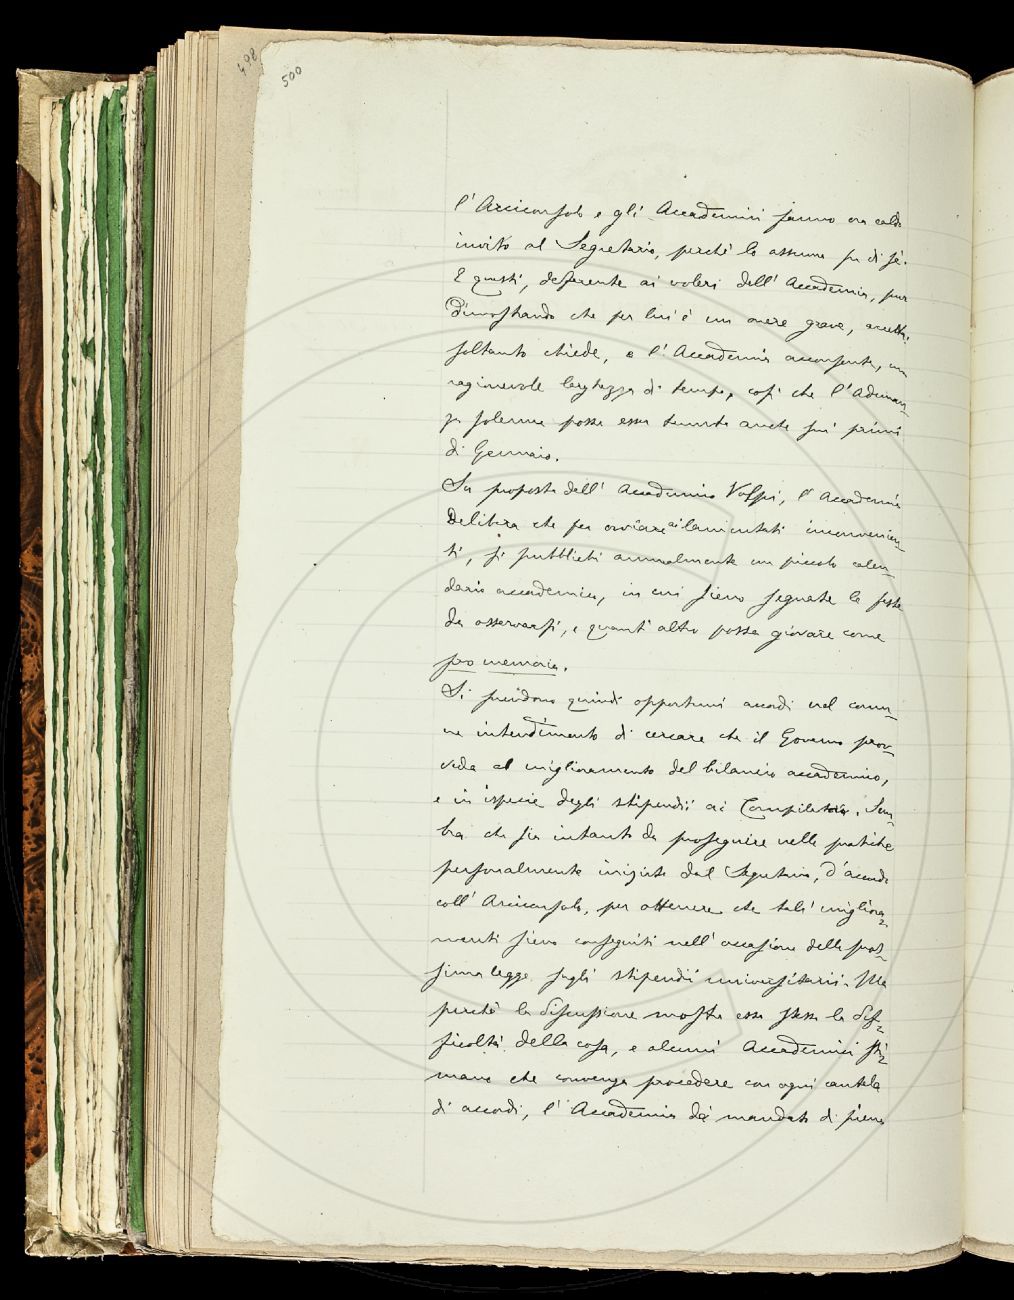 498
500
l'Arciconsolo e gli Accademici fanno ora caldo
invito al Segretario, perchè lo assuma su di sè.
E questi, deferente ai voleri dell'Accademia, pur
dimostrando che per lui è un onere grave, accetta:
soltanto chiede, e l'Accademia acconsente, una
ragionevole larghezza di tempo, così che l'Adunan-
za solenne possa esser tenuta anche sui primi
di Gennaio.
Su proposta dell'Accademico Volpi, l'Accademia
delibera che per ovviare ai lamentati inconvenien-
ti, si pubblichi annualmente un piccolo calen-
dario accademico, in cui sieno segnate le feste
da osservarsi, e quant'altro possa giovare come
pro memoria.
Si prendono quindi opportuni accordi nel comu-
ne intendimento di cercare che il Governo prov-
veda al miglioramento del bilancio accademico,
e in ispecie degli stipendii ai Compilatori. Sem-
bra che sia intanto da proseguire nelle pratiche
personalmente iniziate dal Segretario, d'accordo
coll'Arciconsolo, per ottenere che tali migliora-
menti sieno conseguiti nell'occasione della pros-
sima legge sugli stipendii universitarii. Ma
perchè la discussione mostra essa stessa la dif-
ficoltà della cosa, e alcuni Accademici sti-
mano che convenga procedere con ogni cautela
di accordi, l'Accademia dà mandato di piena